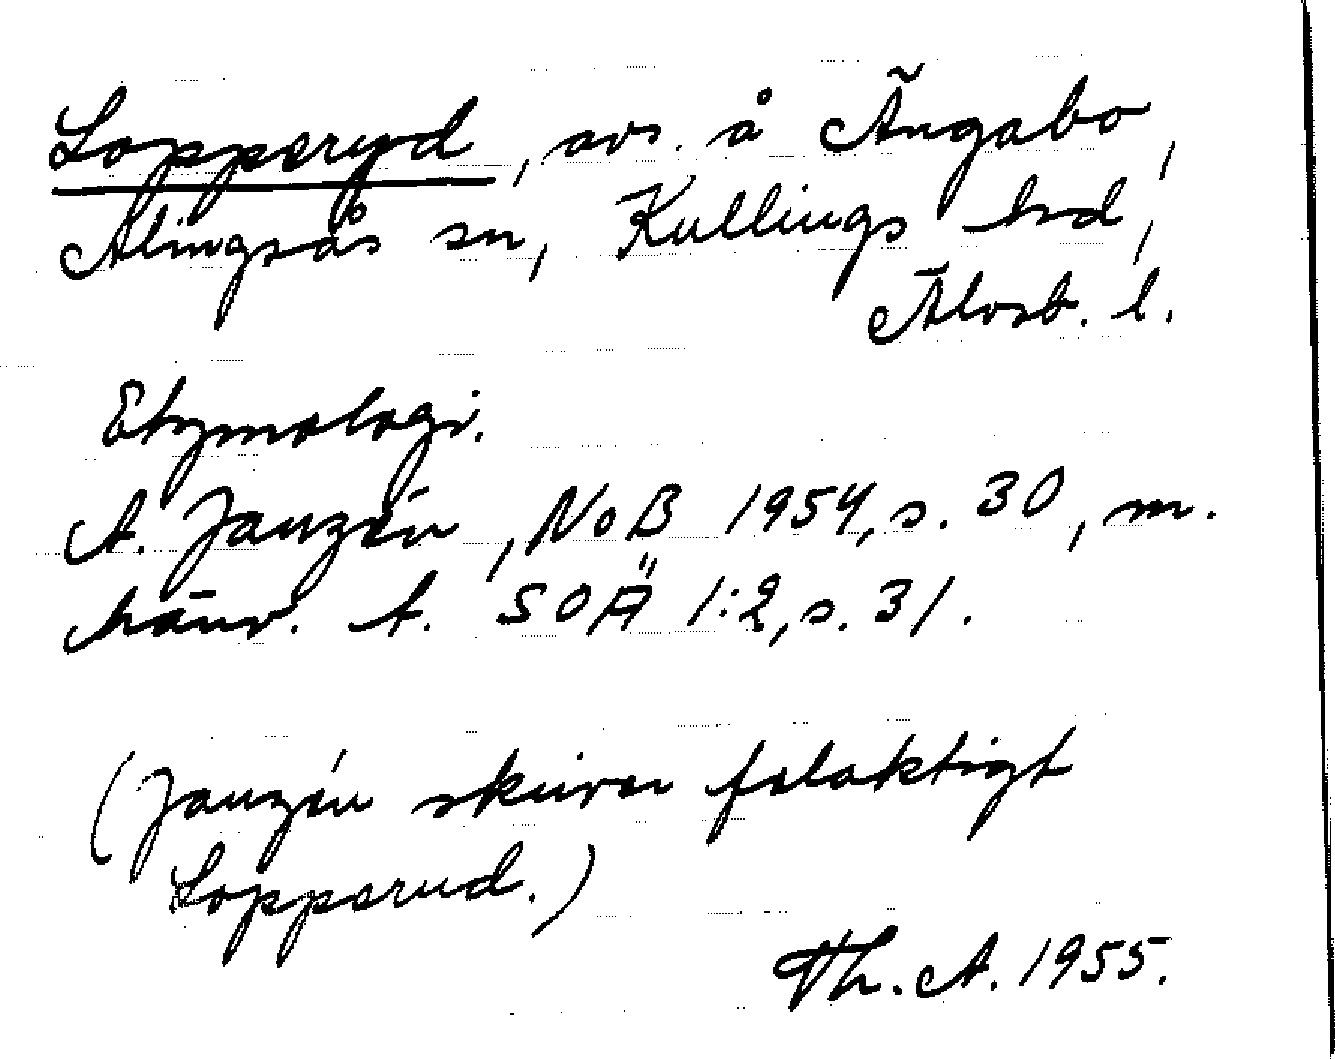 Lopperyd, avs. å Ängabo,
Alingsås sn, Kullings hd,
Älvsb. l.
Etymologi.
A. Janzén, NoB 1954, s. 30, m.
hänv. t. SOÄ 1:2, s. 31.
(Janzén skriver felaktigt
Lopperud.)
Th. A. 1955.